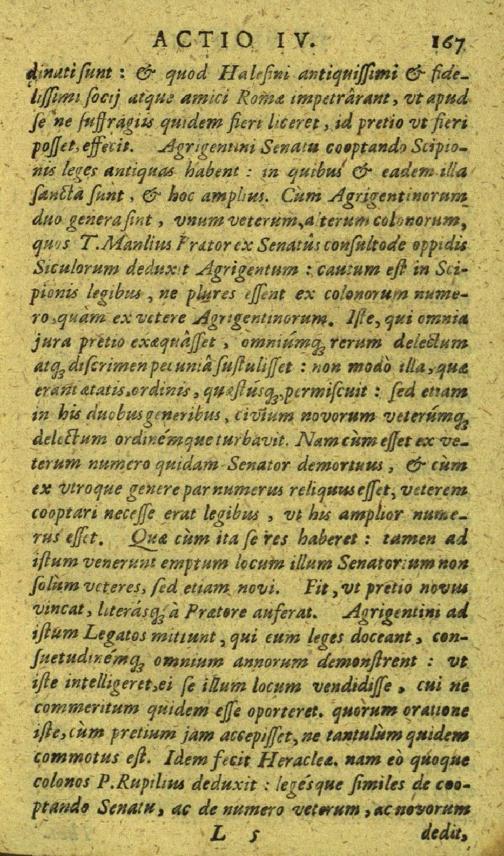 ACTIO IV. 167
dinati sunt : & quod Halesini antiquissimi & fide-
lissimi socij atque amici Romæ impetrârant, vt apud
se ne suffragiis quidem fieri liceret, id pretio vt fieri
posset, effecit. Agrigentini Senatu cooptando Scipio-
nis leges antiquas habent : in quibus & eadem illa
sancta sunt, & hoc amplius. Cùm Agrigentinorum
duo genera sint, vnum veterum, alterum colonorum,
quos T. Manlius Prætor ex Senatûs consulto de oppidis
Siculorum deduxit Agrigentum : cautum est in Sci-
pionis legibus, ne plures essent ex colonorum nume-
ro, quam ex vetere Agrigentinorum. Iste, qui omnia
jura pretio exæquâsset, omniúmq; rerum delectum
atq; discrimen pecuniâ sustulisset : non modò illa, quæ
erant ætatis, ordinis, quæstúsq; permiscuit : sed etiam
in his duobus generibus, civium novorum veterúmq;
delectum ordinémque turbavit. Nam cùm esset ex ve-
terum numero quidam Senator demortuus, & cùm
ex vtroque genere par numerus reliquus esset, veterem
cooptari necesse erat legibus, vt his amplior nume-
rus esset. Quæ cùm ita se res haberet : tamen ad
istum venerunt emptum locum illum Senatorium non
solùm veteres, sed etiam novi. Fit, vt pretio novus
vincat, literásq; à Prætore auferat. Agrigentini ad
istum Legatos mittunt, qui eum leges doceant, con-
suetudinémq; omnium annorum demonstrent : vt
iste intelligeret, ei se illum locum vendidisse, cui ne
commeritum quidem esse oporteret. quorum oratione
iste, cùm pretium jam accepisset, ne tantulùm quidem
commotus est. Idem fecit Heracleæ. nam eò quoque
colonos P. Rupilius deduxit : legésque similes de coo-
ptando Senatu, ac de numero veterum, ac novorum
L 5 dedit,